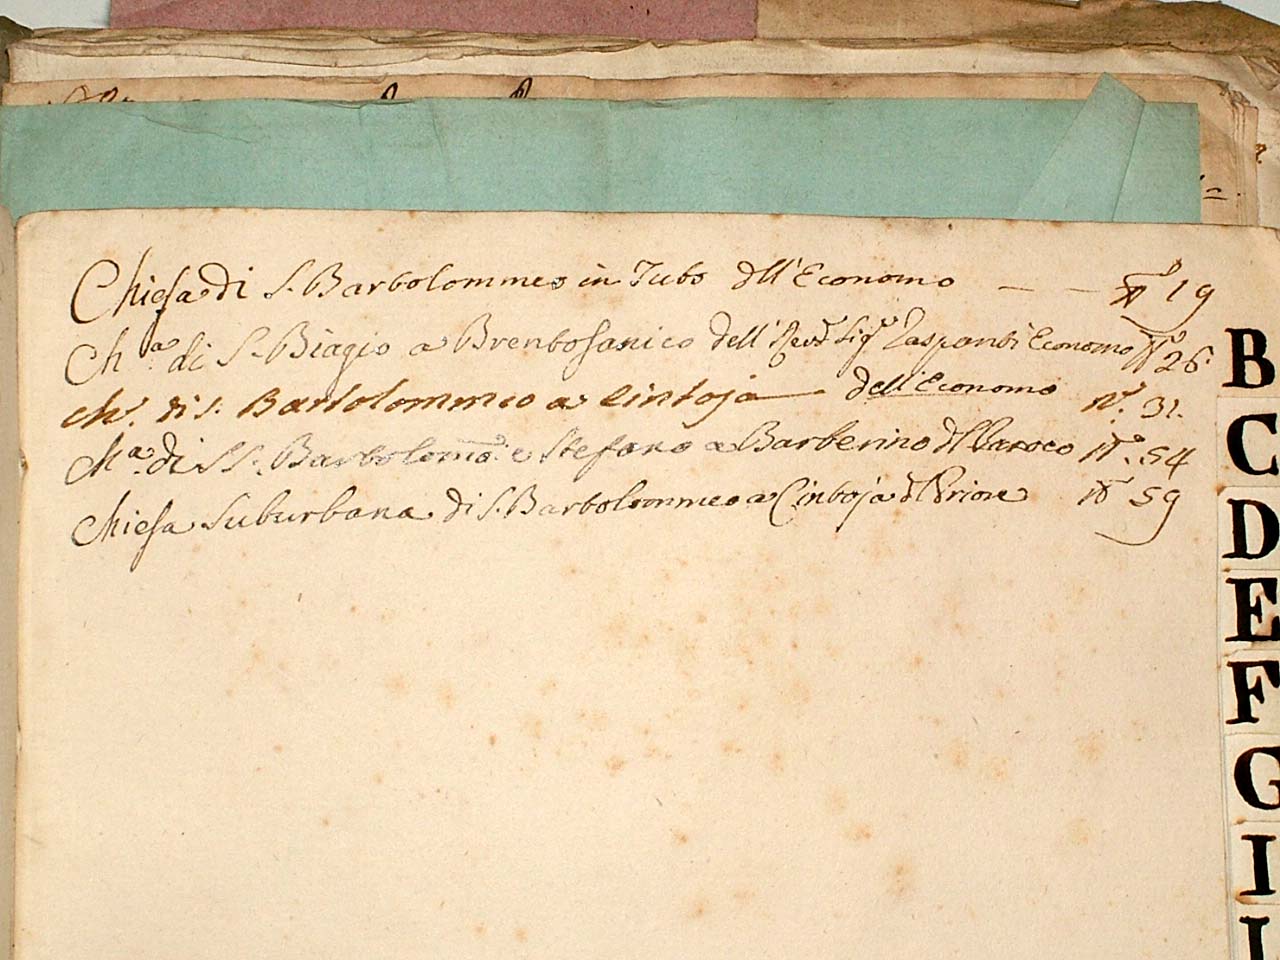 Chiesa di S. Bartolommeo in Tubo dell'Economo — — N.o 19
Ch.a di S. Biagio a Brentosanico dell' Revd. Sig.e Economo N.o 26.
Ch.a di S. Bartolommeo a Cintoja — dell'Economo N.o 31.
Ch.a di SS. Bartolomo. e Stefano a Barberino d. Paroco N.o 54
Chiesa Suburbana di S. Bartolommeo a Cintoja d. Priore N.o 59
B
C
D
E
F
G
I